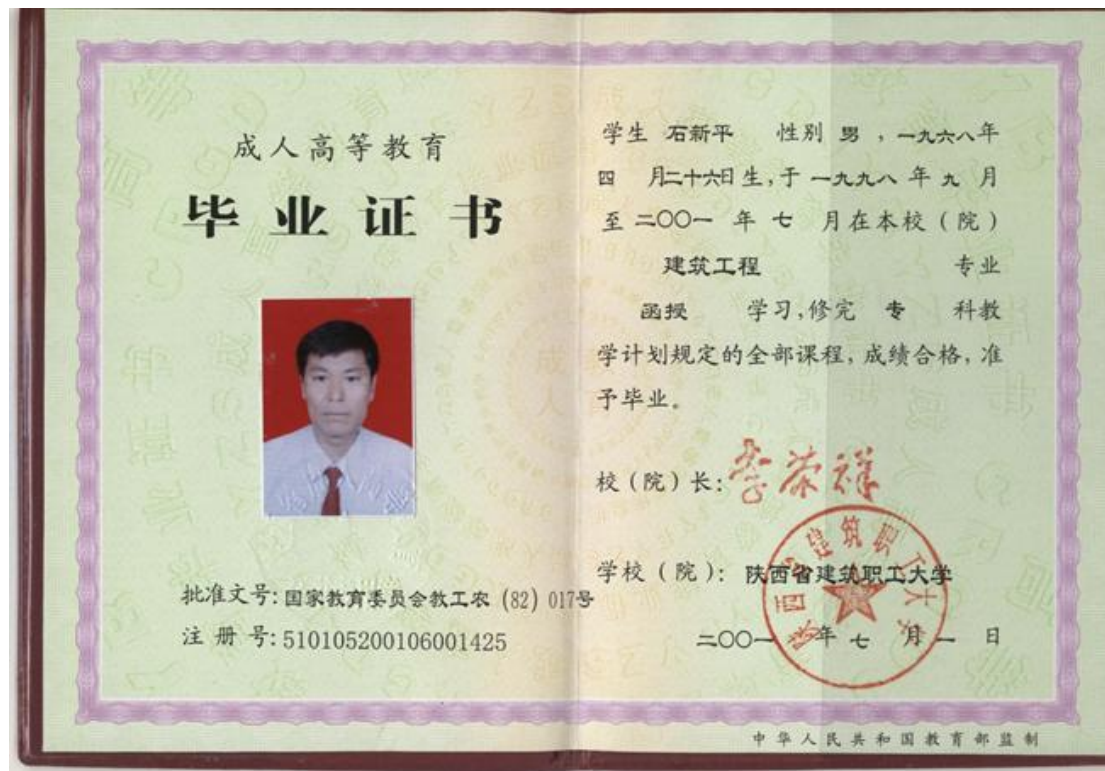 成人高等教育
毕业证书
批准文号:国家教育委员会教工农(82)017号
注册号:510105200106001425
学生 石新平 性别 男 ,一九六八年
四 月二十六日生,于 一九九八 年 九 月
至 二〇〇一 年 七 月在本校(院)
建筑工程 专业
函授 学习,修完 专 科教
学计划规定的全部课程,成绩合格,准
予毕业。
校(院)长:李荣祥
学校(院):陕西省建筑职工大学
陕西省建筑职工大学
二〇〇一 年 七 月 一 日
中华人民共和国教育部监制